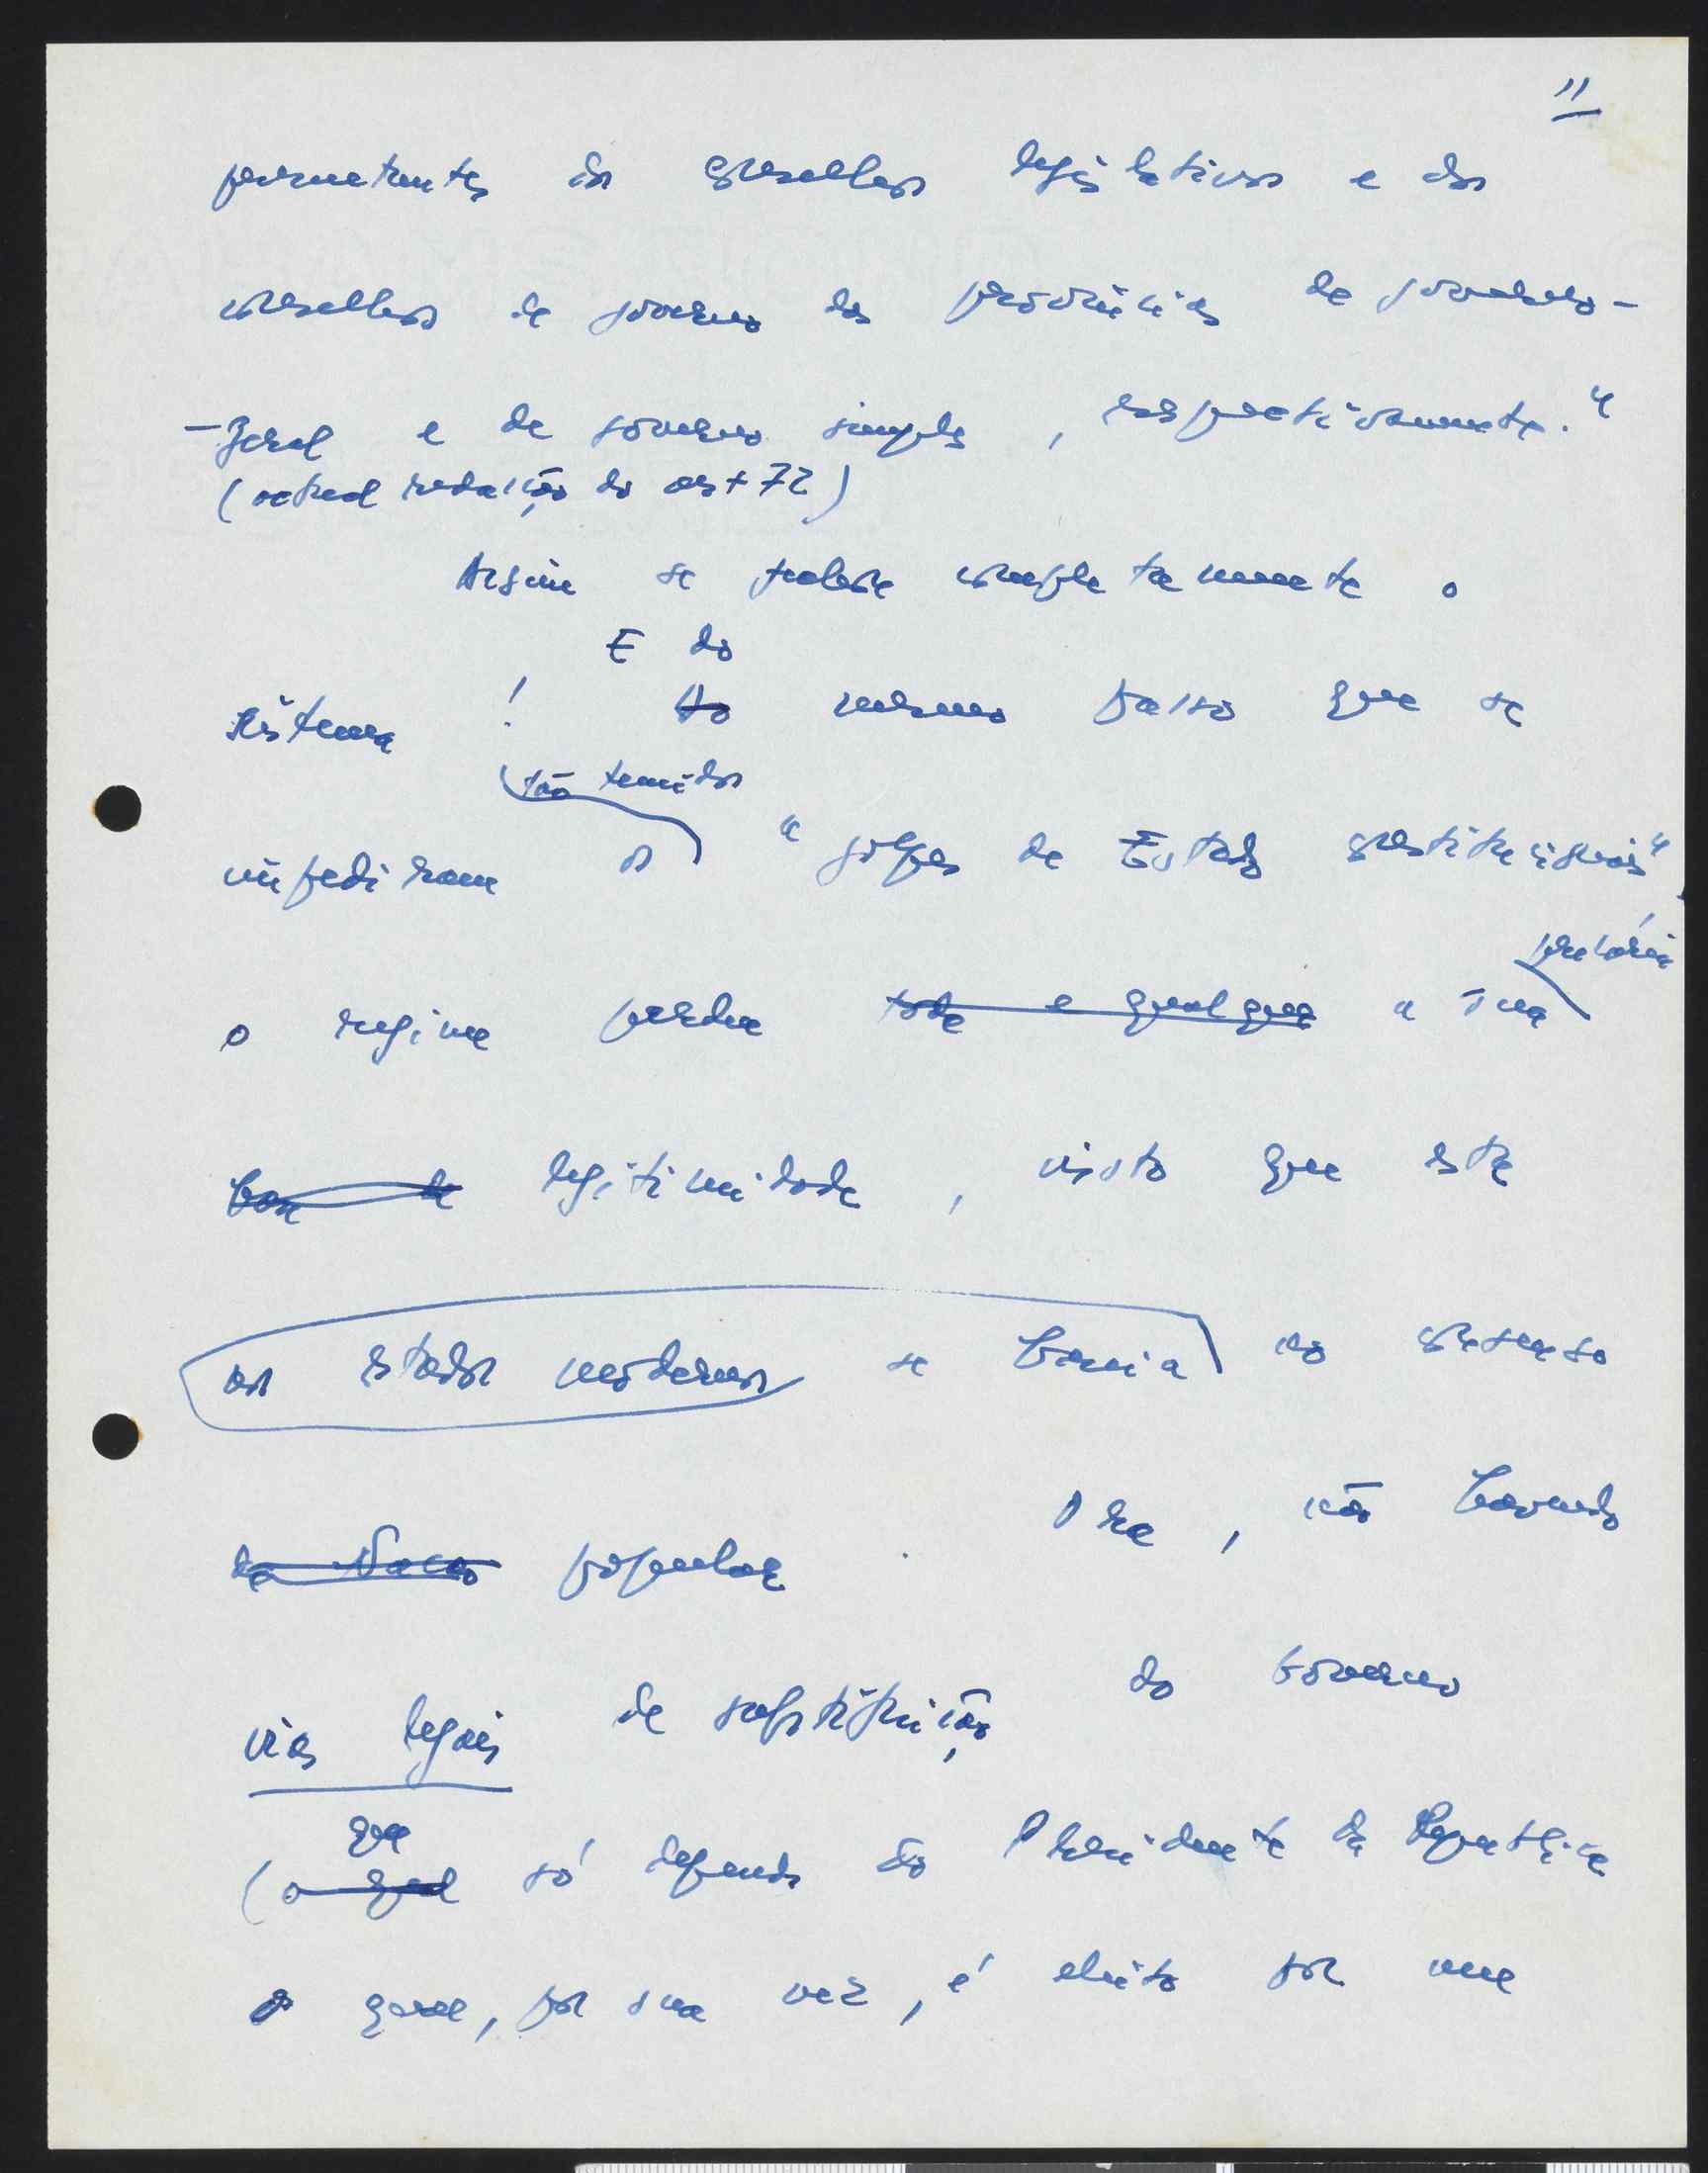 11
permanentes dos conselhos legislativos e dos
conselhos de governo das províncias de governo-
-geral e de governo simples, respectivamente."
(actual redacção do art 72)
Assim se fechou completamente o
E do
sistema ! Ao mesmo passo que se
tão temidos
impediram os "golpes de Estado constitucionais",
precária
o regime perdeu toda e qualquer a sua
base de legitimidade, visto que esta
nos estados modernos se baseia no consenso
da Nação popular. Ora, não havendo
vias legais de substituição do Governo
que
(o qual só depende do Presidente da República
o qual, por sua vez, é eleito por um